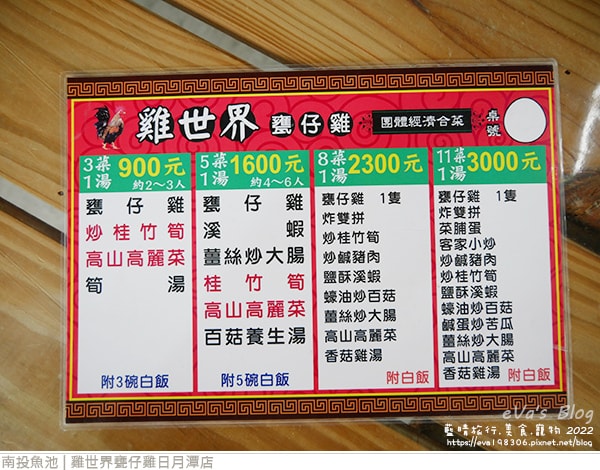 雞世界 甕仔雞 團體經濟合菜 桌號
3菜1湯 900元 約2～3人
甕仔雞
炒桂竹筍
高山高麗菜
筍湯
附3碗白飯
5菜1湯 1600元 約4～6人
甕仔雞
溪蝦
薑絲炒大腸
桂竹筍
高山高麗菜
百菇養生湯
附5碗白飯
8菜1湯 2300元
甕仔雞 1隻
炸雙拼
炒桂竹筍
炒鹹豬肉
鹽酥溪蝦
蠔油炒百菇
薑絲炒大腸
高山高麗菜
香菇雞湯
附白飯
11菜1湯 3000元
甕仔雞 1隻
炸雙拼
菜脯蛋
客家小炒
炒鹹豬肉
炒桂竹筍
鹽酥溪蝦
蠔油炒百菇
鹹蛋炒苦瓜
薑絲炒大腸
高山高麗菜
香菇雞湯 附白飯
eVa's Blog
藍晴旅行.美食.寵物 2022
https://eva198306.pixnet.net/blog
南投魚池 | 雞世界甕仔雞日月潭店